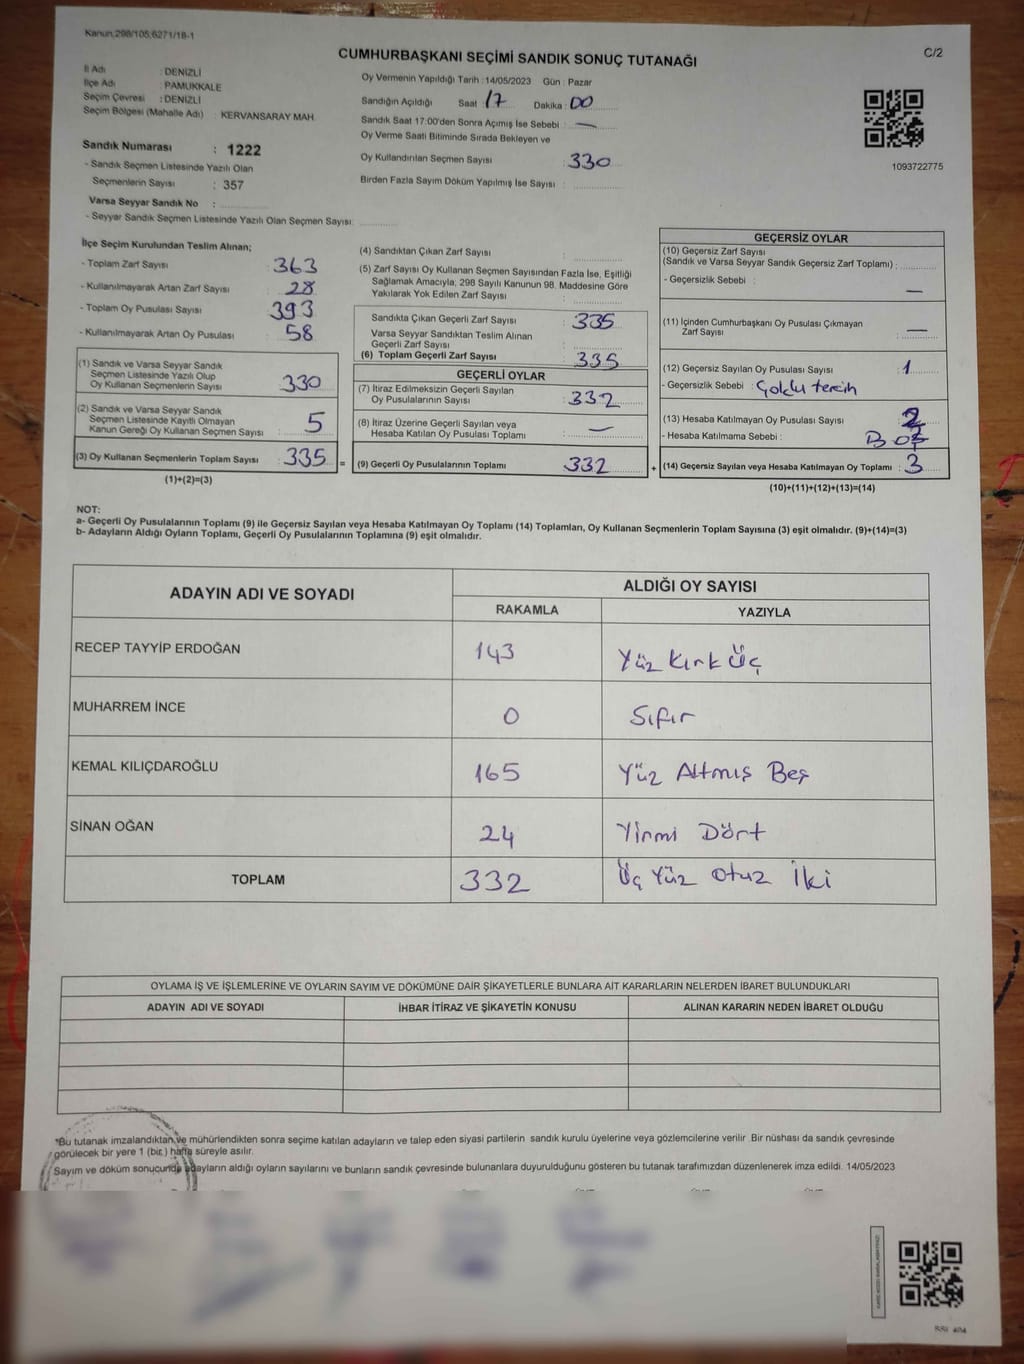 Kanun;298/105;6271/18-1
CUMHURBAŞKANI SEÇİMİ SANDIK SONUÇ TUTANAĞI
C/2
İl Adı : DENİZLİ
İlçe Adı : PAMUKKALE
Seçim Çevresi : DENİZLİ
Seçim Bölgesi (Mahalle Adı) : KERVANSARAY MAH.
Sandık Numarası : 1222
- Sandık Seçmen Listesinde Yazılı Olan
Seçmenlerin Sayısı : 357
Varsa Seyyar Sandık No :
- Seyyar Sandık Seçmen Listesinde Yazılı Olan Seçmen Sayısı:
Oy Vermenin Yapıldığı Tarih :14/05/2023 Gün : Pazar
Sandığın Açıldığı Saat 17 Dakika : 00
Sandık Saat 17:00'den Sonra Açımış İse Sebebi : —
Oy Verme Saati Bitiminde Sırada Bekleyen ve
Oy Kullandırılan Seçmen Sayısı : 330
Birden Fazla Sayım Döküm Yapılmış İse Sayısı :
1093722775
İlçe Seçim Kurulundan Teslim Alınan;
- Toplam Zarf Sayısı : 363
- Kullanılmayarak Artan Zarf Sayısı : 28
- Toplam Oy Pusulası Sayısı : 393
- Kullanılmayarak Artan Oy Pusulası : 58
(1) Sandık ve Varsa Seyyar Sandık
Seçmen Listesinde Yazılı Olup
Oy Kullanan Seçmenlerin Sayısı : 330
(2) Sandık ve Varsa Seyyar Sandık
Seçmen Listesinde Kayıtlı Olmayan
Kanun Gereği Oy Kullanan Seçmen Sayısı : 5
(3) Oy Kullanan Seçmenlerin Toplam Sayısı : 335
=
(1)+(2)=(3)
(4) Sandıktan Çıkan Zarf Sayısı :
(5) Zarf Sayısı Oy Kullanan Seçmen Sayısından Fazla İse, Eşitliği
Sağlamak Amacıyla; 298 Sayılı Kanunun 98. Maddesine Göre
Yakılarak Yok Edilen Zarf Sayısı :
Sandıkta Çıkan Geçerli Zarf Sayısı : 335
Varsa Seyyar Sandıktan Teslim Alınan
Geçerli Zarf Sayısı :
(6) Toplam Geçerli Zarf Sayısı : 335
GEÇERLİ OYLAR
(7) İtiraz Edilmeksizin Geçerli Sayılan
Oy Pusulalarının Sayısı : 332
(8) İtiraz Üzerine Geçerli Sayılan veya
Hesaba Katılan Oy Pusulası Toplamı : —
(9) Geçerli Oy Pusulalarının Toplamı : 332
+
GEÇERSİZ OYLAR
(10) Geçersiz Zarf Sayısı
(Sandık ve Varsa Seyyar Sandık Geçersiz Zarf Toplamı) :
- Geçersizlik Sebebi : —
(11) İçinden Cumhurbaşkanı Oy Pusulası Çıkmayan
Zarf Sayısı : —
(12) Geçersiz Sayılan Oy Pusulası Sayısı : 1
- Geçersizlik Sebebi : Çoklu tercih
(13) Hesaba Katılmayan Oy Pusulası Sayısı : 2
- Hesaba Katılmama Sebebi : Boş
(14) Geçersiz Sayılan veya Hesaba Katılmayan Oy Toplamı : 3
(10)+(11)+(12)+(13)=(14)
NOT:
a- Geçerli Oy Pusulalarının Toplamı (9) ile Geçersiz Sayılan veya Hesaba Katılmayan Oy Toplamı (14) Toplamları, Oy Kullanan Seçmenlerin Toplam Sayısına (3) eşit olmalıdır. (9)+(14)=(3)
b- Adayların Aldığı Oyların Toplamı, Geçerli Oy Pusulalarının Toplamına (9) eşit olmalıdır.
ADAYIN ADI VE SOYADI
ALDIĞI OY SAYISI
RAKAMLA YAZIYLA
RECEP TAYYİP ERDOĞAN 143 Yüz Kırk Üç
MUHARREM İNCE 0 Sıfır
KEMAL KILIÇDAROĞLU 165 Yüz Altmış Beş
SİNAN OĞAN 24 Yirmi Dört
TOPLAM 332 Üç Yüz Otuz İki
OYLAMA İŞ VE İŞLEMLERİNE VE OYLARIN SAYIM VE DÖKÜMÜNE DAİR ŞİKAYETLERLE BUNLARA AİT KARARLARIN NELERDEN İBARET BULUNDUKLARI
ADAYIN ADI VE SOYADI İHBAR İTİRAZ VE ŞİKAYETİN KONUSU ALINAN KARARIN NEDEN İBARET OLDUĞU
*Bu tutanak imzalandıktan ve mühürlendikten sonra seçime katılan adayların ve talep eden siyasi partilerin sandık kurulu üyelerine veya gözlemcilerine verilir. Bir nüshası da sandık çevresinde
görülecek bir yere 1 (bir) hafta süreyle asılır.
Sayım ve döküm sonucunda adayların aldığı oyların sayılarını ve bunların sandık çevresinde bulunanlara duyurulduğunu gösteren bu tutanak tarafımızdan düzenlenerek imza edildi. 14/05/2023